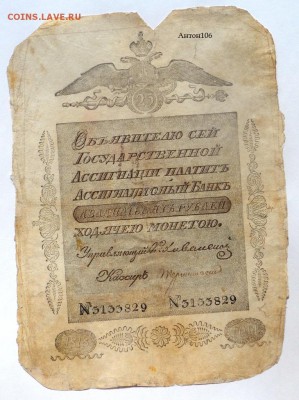 COINS.LAVE.RU
Антон106
25
Объявителю сей
Государственной
Ассигнации платитъ
Ассигнацiонный Банкъ
двадцать пять рублей
ходячею монетою.
Управляющiй
Кассиръ
№3133829 №3133829